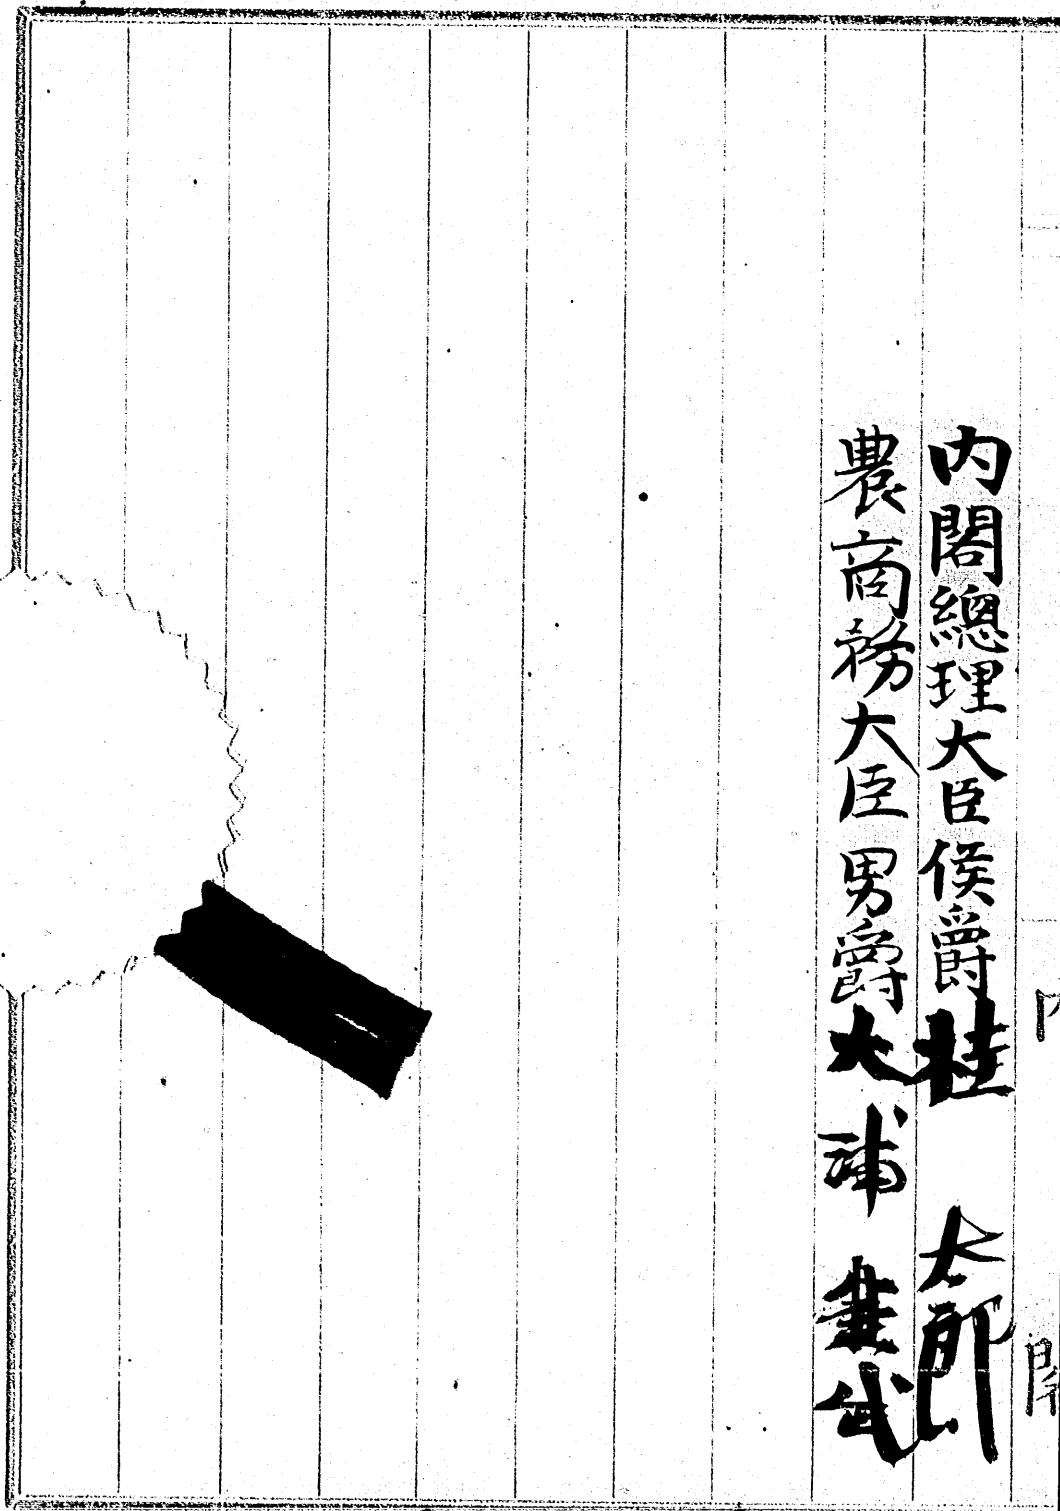 内閣總理大臣侯爵桂太郎
農商務大臣男爵大浦兼武